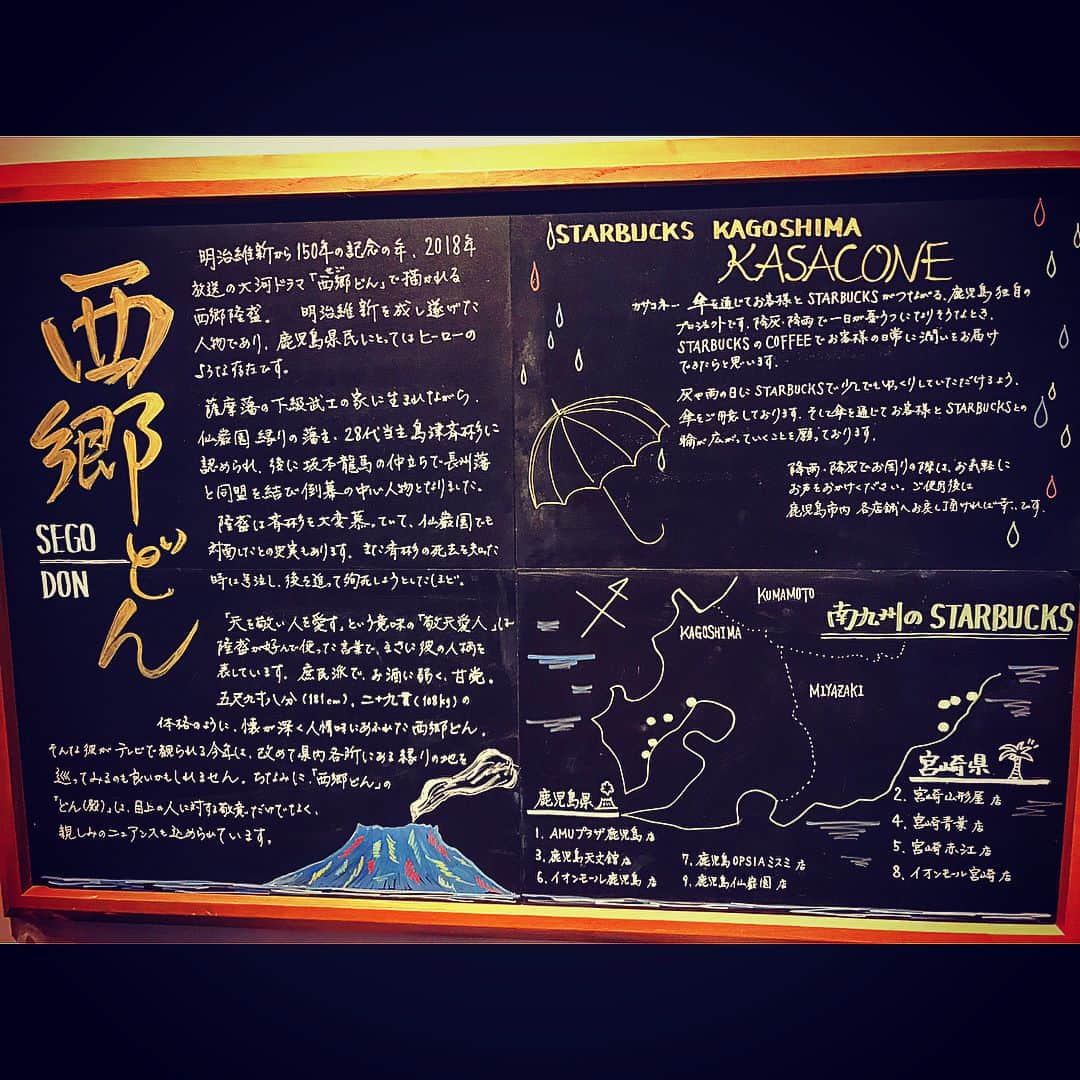 西郷どん
SEGO
DON
明治維新から150年の記念の年、2018年
放送の大河ドラマ「西郷どん」で描かれる
西郷隆盛。 明治維新を成し遂げた
人物であり、鹿児島県民にとってはヒーローの
ような存在です。
薩摩藩の下級武士の家に生まれながら、
仙巌園縁りの藩主、28代当主島津斉彬に
認められ、後に坂本龍馬の仲立ちで長州藩
と同盟を結び倒幕の中心人物となりました。
隆盛は斉彬を大変慕っていて、仙巌園でも
対面したとの史実もあります。また斉彬の死去を知った
時に号泣し、後を追って殉死しようとしたほど。
「天を敬い人を愛す」という意味の「敬天愛人」は
隆盛が好んで使った言葉で、まさに彼の人柄を
表しています。庶民派で、お酒に弱く、甘党。
五尺九寸八分(181cm)、二十九貫(108kg)の
体格のように、懐が深く人情味にあふれた西郷どん。
そんな彼がテレビで観られる今年は、改めて県内各所にある縁りの地を
巡ってみるのも良いかもしれません。ちなみに、「西郷どん」の
「どん(殿)」は、目上の人に対する敬意だけでなく、
親しみのニュアンスも込められています。
STARBUCKS KAGOSHIMA
KASACONE
カサコネー 傘を通じてお客様とSTARBUCKSがつながる、鹿児島独自の
プロジェクトです。降灰・降雨で一日が憂うつになりそうなとき、
STARBUCKSのCOFFEEでお客様の日常に潤いをお届け
できたらと思います。
灰や雨の日にSTARBUCKSで少しでもゆっくりしていただけるよう、
傘をご用意しております。そして傘を通じてお客様とSTARBUCKSとの
輪が広がっていくことを願っております。
降雨・降灰でお困りの際は、お気軽に
お声をおかけください。ご使用後は
鹿児島市内 各店舗へお戻し頂ければ幸いです。
南九州のSTARBUCKS
KUMAMOTO
KAGOSHIMA
MIYAZAKI
鹿児島県
1. AMUプラザ鹿児島店
3. 鹿児島天文館店
6. イオンモール鹿児島店
7. 鹿児島OPSIAミスミ店
9. 鹿児島仙巌園店
宮崎県
2. 宮崎山形屋店
4. 宮崎青葉店
5. 宮崎赤江店
8. イオンモール宮崎店